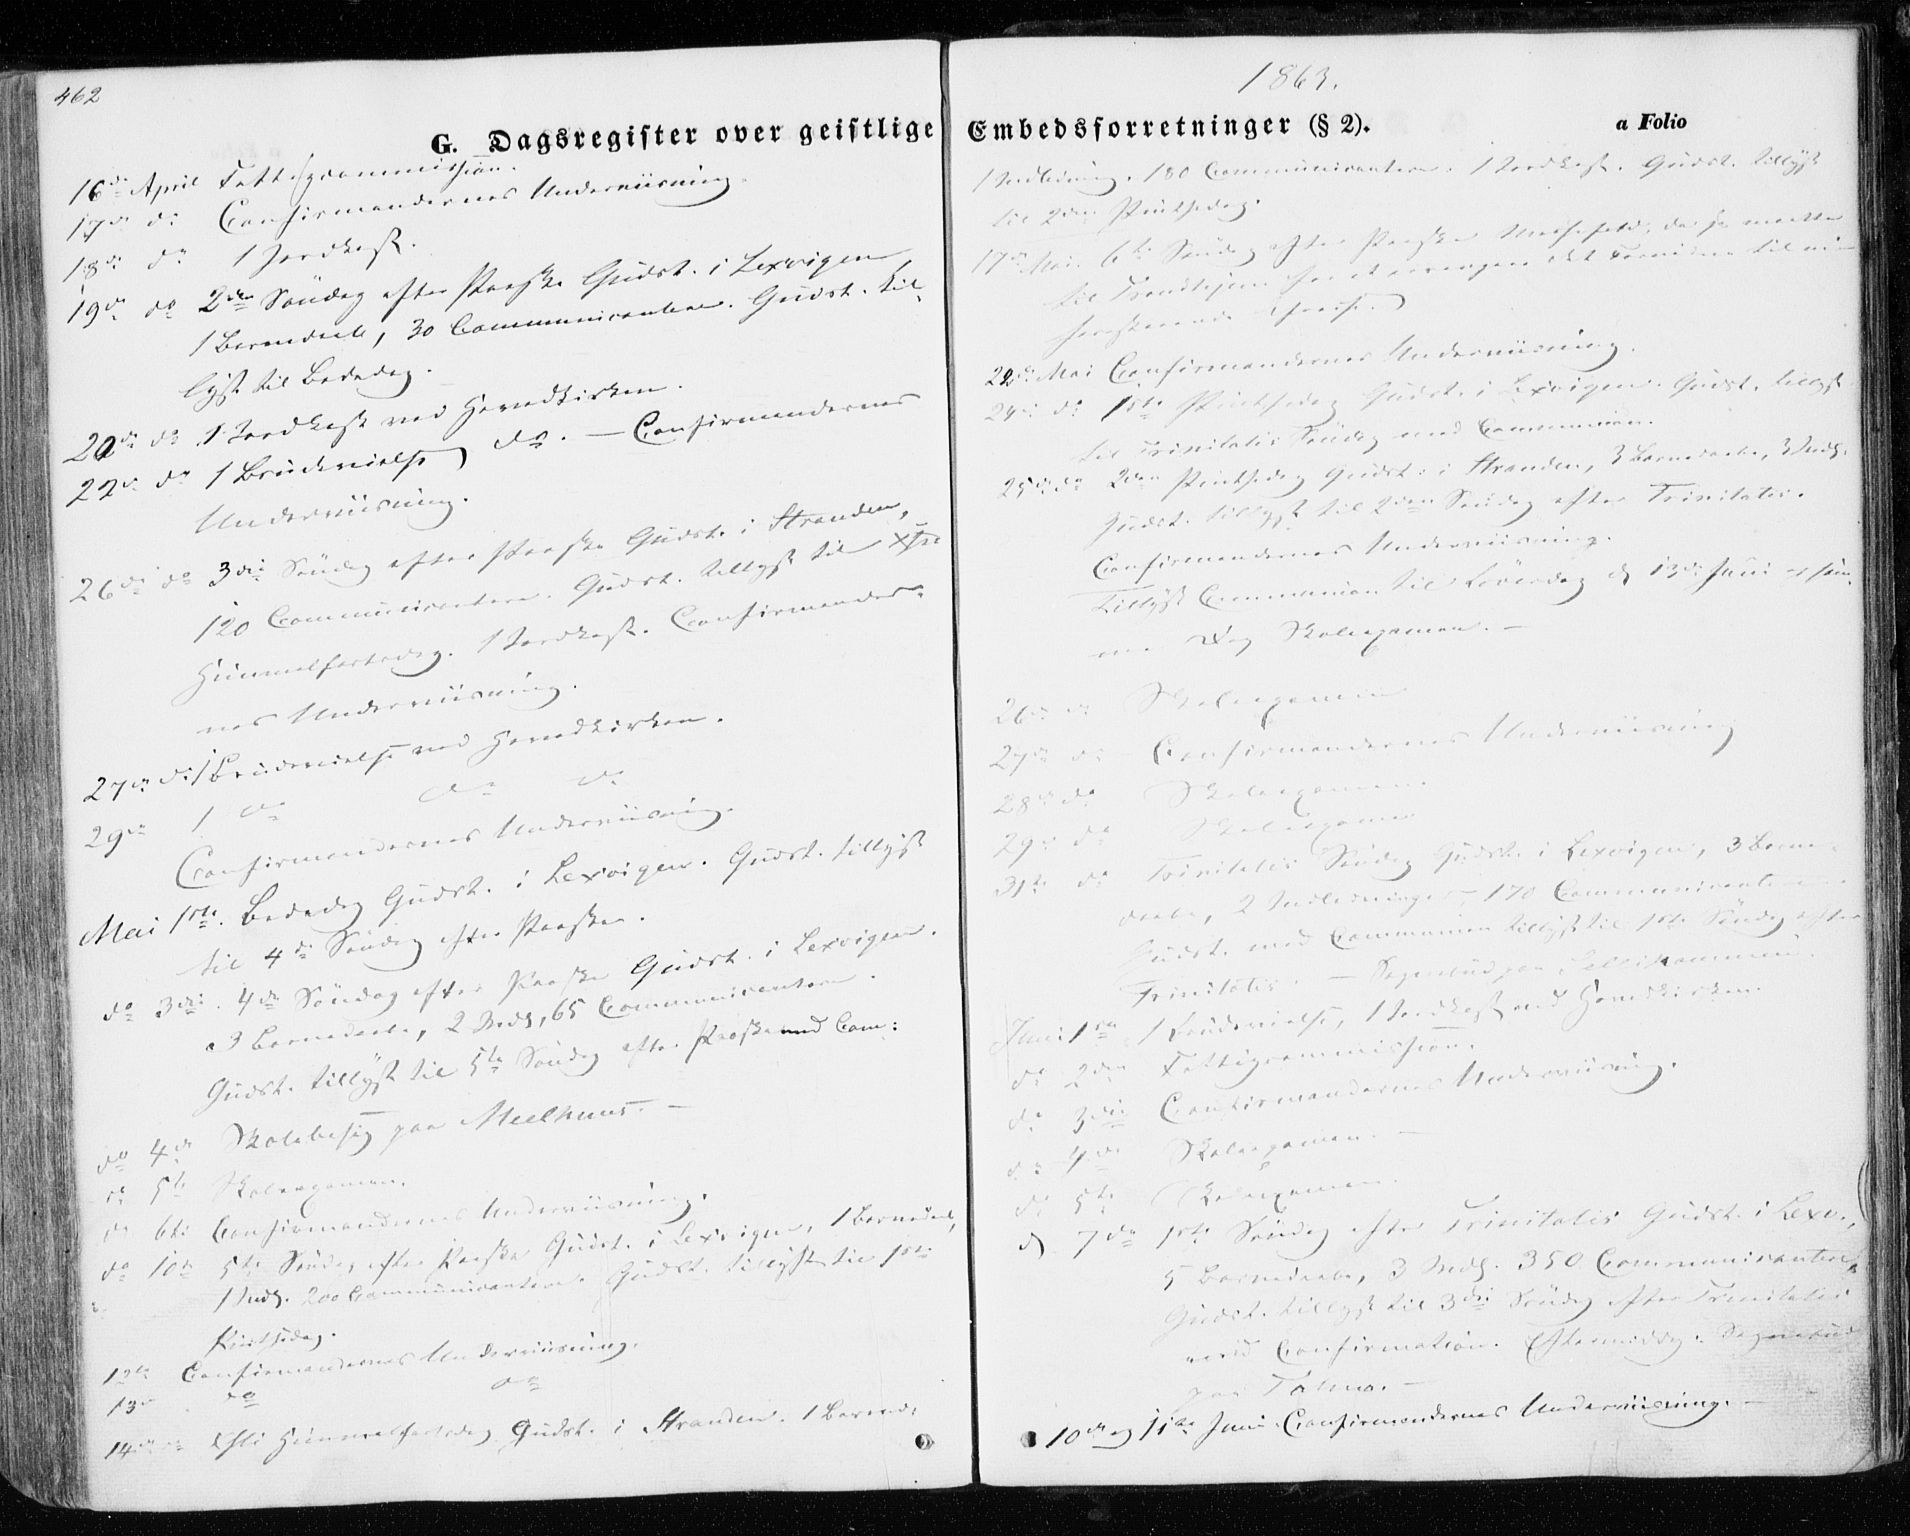 462
1863.
G. Dagsregister over geistlige Embedsforretninger (§ 2).
a Folio
16de April Fattigcommission.
17de do Confirmandernes Underviisning.
18de do 1 Jordkast.
19de do 2den Søndag efter Paaske Gudst. i Lexvigen
1 Barnedaab, 30 Communicantere. Gudst. til-
lyst til Bededag.
20de do 1 Jordkast ved Hovedkirken.
22de do 1 Brudevielse do. — Confirmandernes
Underviisning.
26de do 3die Søndag efter Paaske Gudst. i Stranden,
120 Communicantere. Gudst. tillyst til Xsti
Himmelfartsdag. 1 Jordkast. Confirmander-
nes Underviisning.
27de do 1 Brudevielse ved Hovedkirken.
29de 1 do do do
Confirmandernes Underviisning.
Mai 1ste. Bededag Gudst. i Lexvigen. Gudst. tillyst
til 4de Søndag efter Paaske.
do 3die. 4de Søndag efter Paaske Gudst. i Lexvigen.
3 Barnedaabe, 2 Indl, 65 Communicantere.
Gudst. tillyst til 5te Søndag efter Paaske med Com:
do 4de Skolebesøg paa Meelhuus. —
do 5te Skoleexamen.
do 6te Confirmandernes Underviisning.
do 10de 5te Søndag efter Paaske Gudst. i Lexvigen, 1 Barnedaab,
1 Indl. 200 Communicantere. Gudst. tillyst til 1ste
Pintsedag.
12te Confirmandernes Underviisning.
13de do do
14de do Xsti Himmelfartsdag Gudst. i Stranden. 1 Barned:
1 Indledning. 180 Communicantere. 1 Jordkast. Gudst. tillyst
til 2den Pintsedag.
17de Mai. 6te Søndag efter Paaske da jeg maatte
til Trondhjem for at
22de Mai Confirmandernes Underviisning.
24de do 1ste Pintsedag Gudst. i Lexvigen. Gudst. tillyst
til Trinitatis Søndag med Communion.
25de do 2den Pintsedag Gudst. i Stranden, 3 Barnedaabe, 3 Indl.
Gudst. tillyst til 2den Søndag efter Trinitatis.
Confirmandernes Underviisning.
Tillyst Communion til Løverdag d 13de Juni og sam-
me Dag Skoleexamen. —
26de do Skoleexamen
27de do Confirmandernes Underviisning
28de do Skoleexamen.
29de do Skoleexamen
31te do Trinitatis Søndag Gudst. i Lexvigen, 3 Barne-
daabe, 2 Indledninger — 170 Communicantere.
Gudst. med Communion tillyst til 1ste Søndag efter
Trinitatis. — Sognebud paa
Juni 1ste 1 Brudevielse, 1 Jordkast ved Hovedkirken.
do 2den Fattigcommission.
do 3die Confirmandernes Underviisning.
do 4de Skoleexamen. —
do 5te Skoleexamen.
d 7de 1ste Søndag efter Trinitatis Gudst. i Lexv.,
5 Barnedaabe, 3 Indl. 350 Communicantere,
Gudst. tillyst til 3die Søndag efter Trinitatis
med Confirmation. Eftermiddag: Sognebud
paa —
10de og 11te Juni. Confirmandernes Underviisning. —